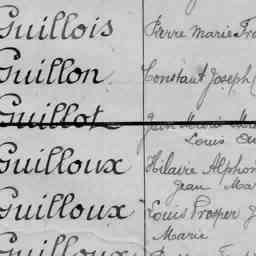 Guillois Pierre Marie
Guillon Constant Joseph
Guillot Jean Marie
Louis
Guilloux Hilaire Alphon
Jean Mar
Guilloux Louis Prosper J
Marie
Guilloux